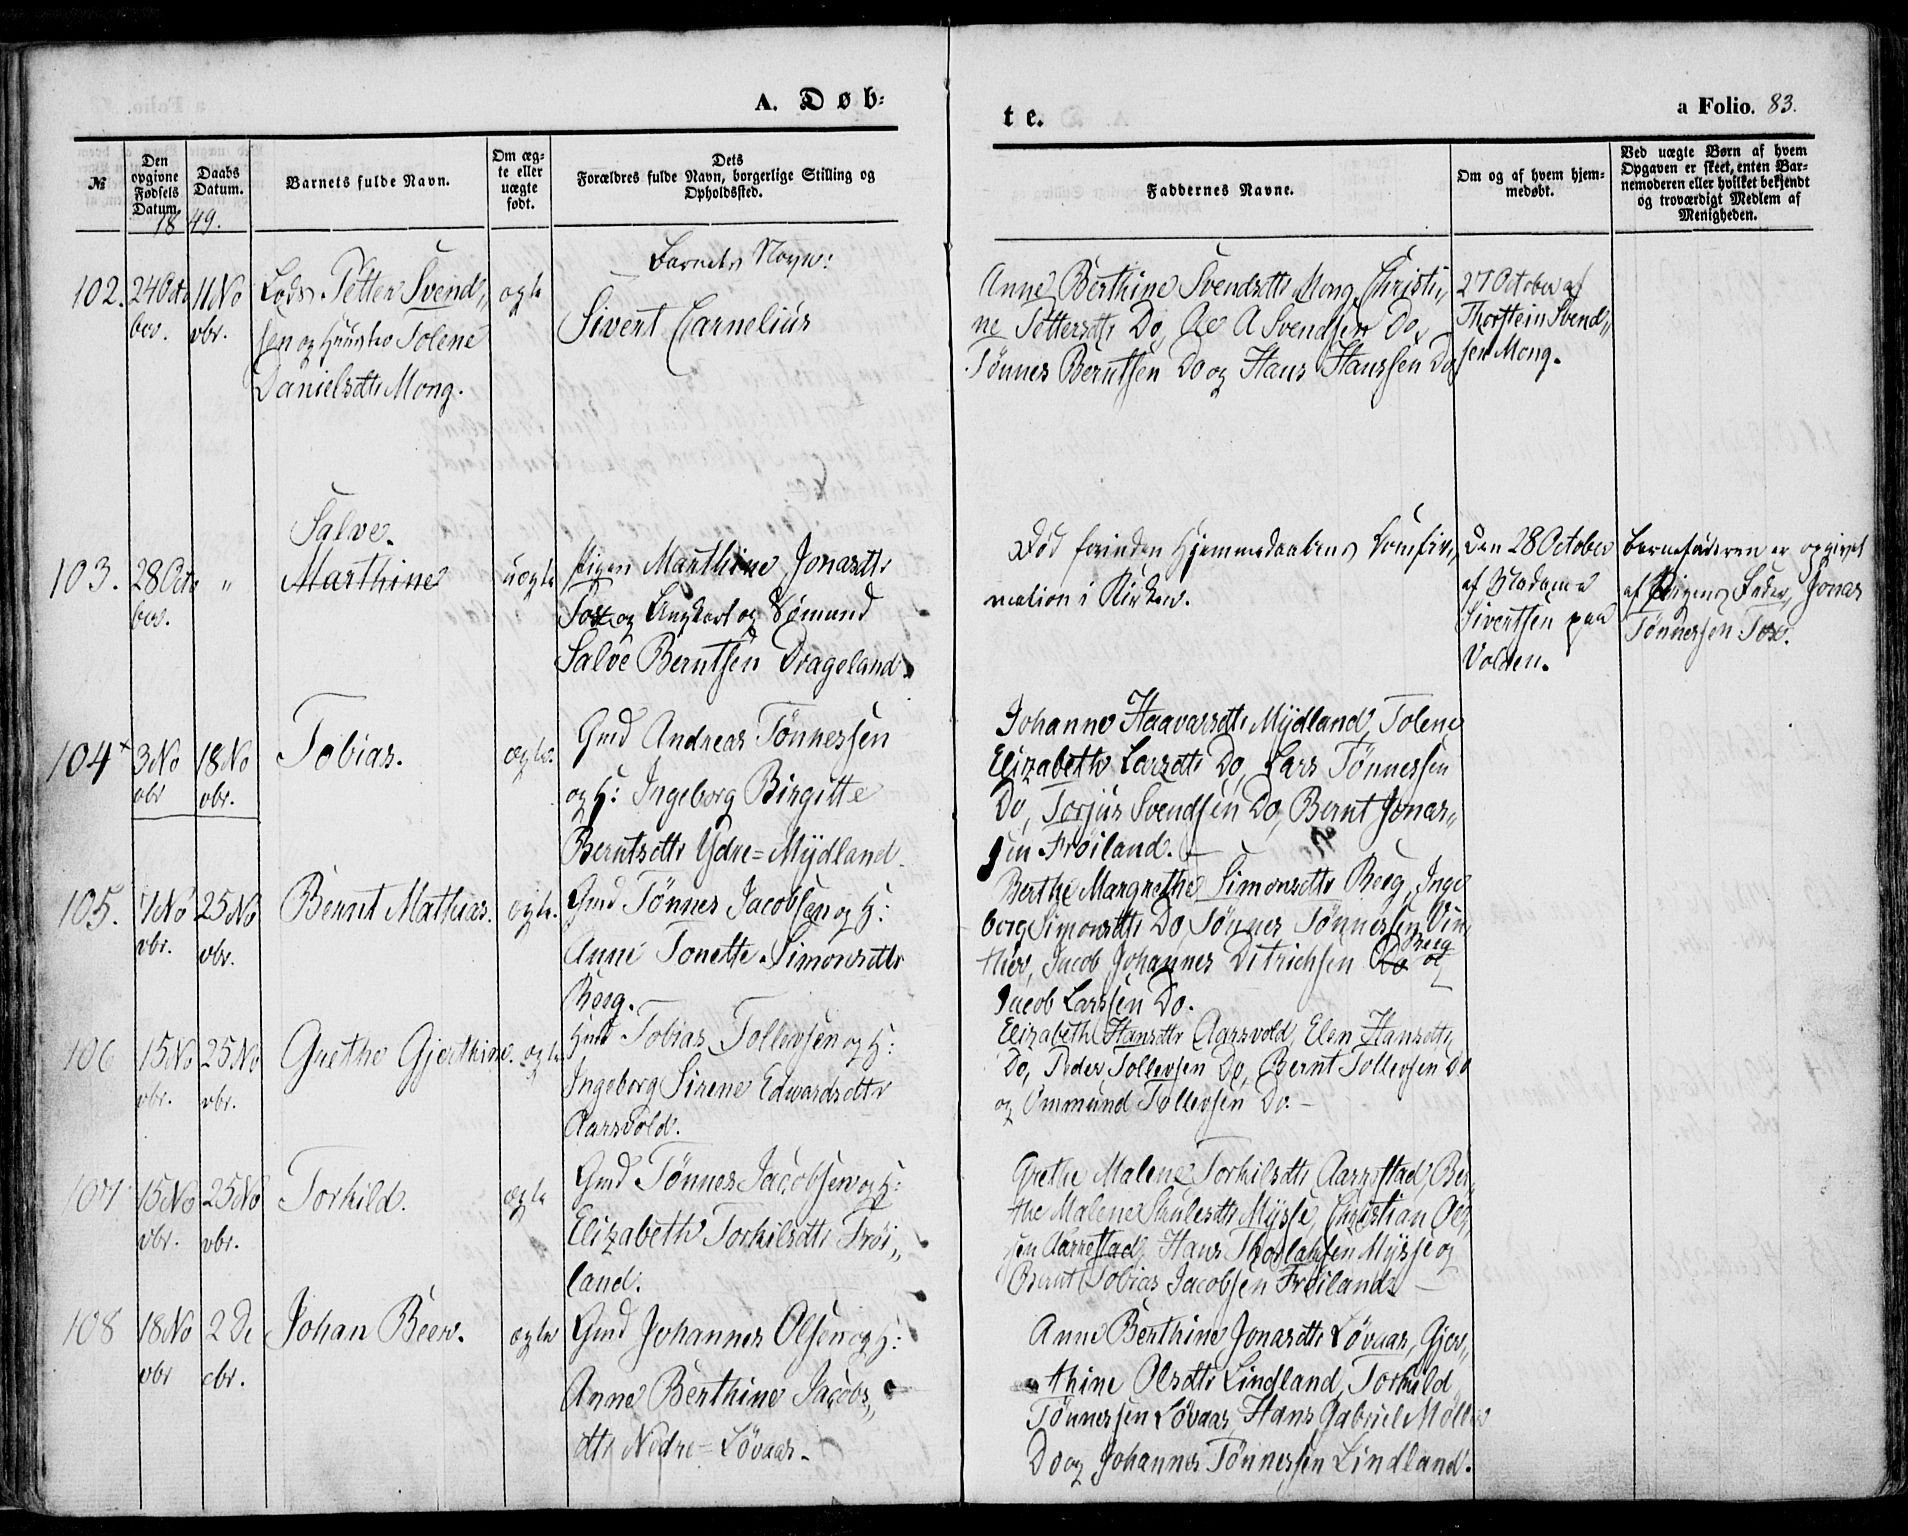 A. Døb=
te.
a Folio. 83.
№
Den opgivne Fødsels Datum.
Daabs Datum.
Barnets fulde Navn.
Om æg-
te eller
uægte
født.
Dets
Forældres fulde Navn, borgerlige Stilling og
Opholdssted.
Faddernes Navne.
Om og af hvem hjem-
medøbt.
Ved uægte Børn af hvem
Opgaven er skeet, enten Bar-
nemoderen eller hvilket bekjendt
og troværdigt Medlem af
Menigheden.
1849.
102.
24 Octo
ber.
11 No
vbr.
Lods Petter Svend„
sen og Huustro Tolene
Danielsdtr Mong.
ægte
Barnets Navn:
Sivert Carnelius
Anne Berthine Svendsdtr Mong, Christi„
ne Pettersdtr Do, A Svendsen Do,
Tønnes Berntsen Do og Hans Hanssen Do
27 October af
Thorstein Svend„
sen Mong.
103.
28 Octo
ber.
„
Salve.
Marthine
uægte
Pigen Marthine Jonasdtr
Tox og Ungkarl og Sømand
Salve Berntsen Drageland.
Død forinden Hjemmedaabens Comfir„
mation i Kirken.
Den 28 October
af Madame
Sivertsen paa
Volden.
Barnefaderen er opgivet
af Pigens Fader, Jonas
Tønnessen Tox.
104 +
3 No
vbr
18 No
vbr.
Tobias.
ægte.
Gmd Andreas Tønnessen
og H: Ingeborg Birgitte
Berntsdtr Ydre=Mydland
Johanne Haavarsdtr Mydland, Tolene
Elizabeth Larsdtr Do, Lars Tønnessen
Do, Torjus Svendsen Do, Bernt Jonas„
sen Frøiland. —
105.
7 No
vbr.
25 No
vbr.
Bernt Mathias.
ægte.
Gmd Tønnes Jacobsen og H:
Anne Tonette Simonsdtr
Berg.
Berthe Margrethe Simonsdtr Berg, Inge
borg Simonsdtr Do, Tønnes Tønnessen Vin
ther, Jacob Johannes Ditrichsen Do Berg og
Jacob Larssen Do.
106
15 No
vbr.
25 No
vbr.
Grethe Gjerthine.
ægte
Hmd Tobias Tollevsen og H:
Ingeborg Sirene Edwardsdtr
Aarsvold.
Elizabeth Hansdtr Aarsvold, Elen Hansdtr
Do, Peder Tollevsen Do, Bernt Tollevsen Do
og Ommund Tollevsen Do. —
107
15 No
vbr.
25 No
vbr.
Torkild.
ægte
Gmd Tønnes Jacobsen og H:
Elizabeth Torkilsdtr Frøi„
land.
Grethe Malene Torkilsdtr Aarrestad, Ber„
the Malene Skulesdtr Mysse, Christian Ol„
sen Aarrestad, Hans Thorlaksen Mysse og
Bernt Tobias Jacobsen Frøiland. —
108
18 No
vbr
2 De
cbr.
Johan Beer.
ægte
Gmd Johannes Olsen og H:
Anne Berthine Jacobs„
dtr Nedre=Løvaas.
Anne Berthine Jonasdtr Løvaas, Gjer„
thine Olsdtr Lindland, Torkild
Tønnessen Løvaas, Hans Gabriel Møller
Do og Johannes Tønnessen Lindland.